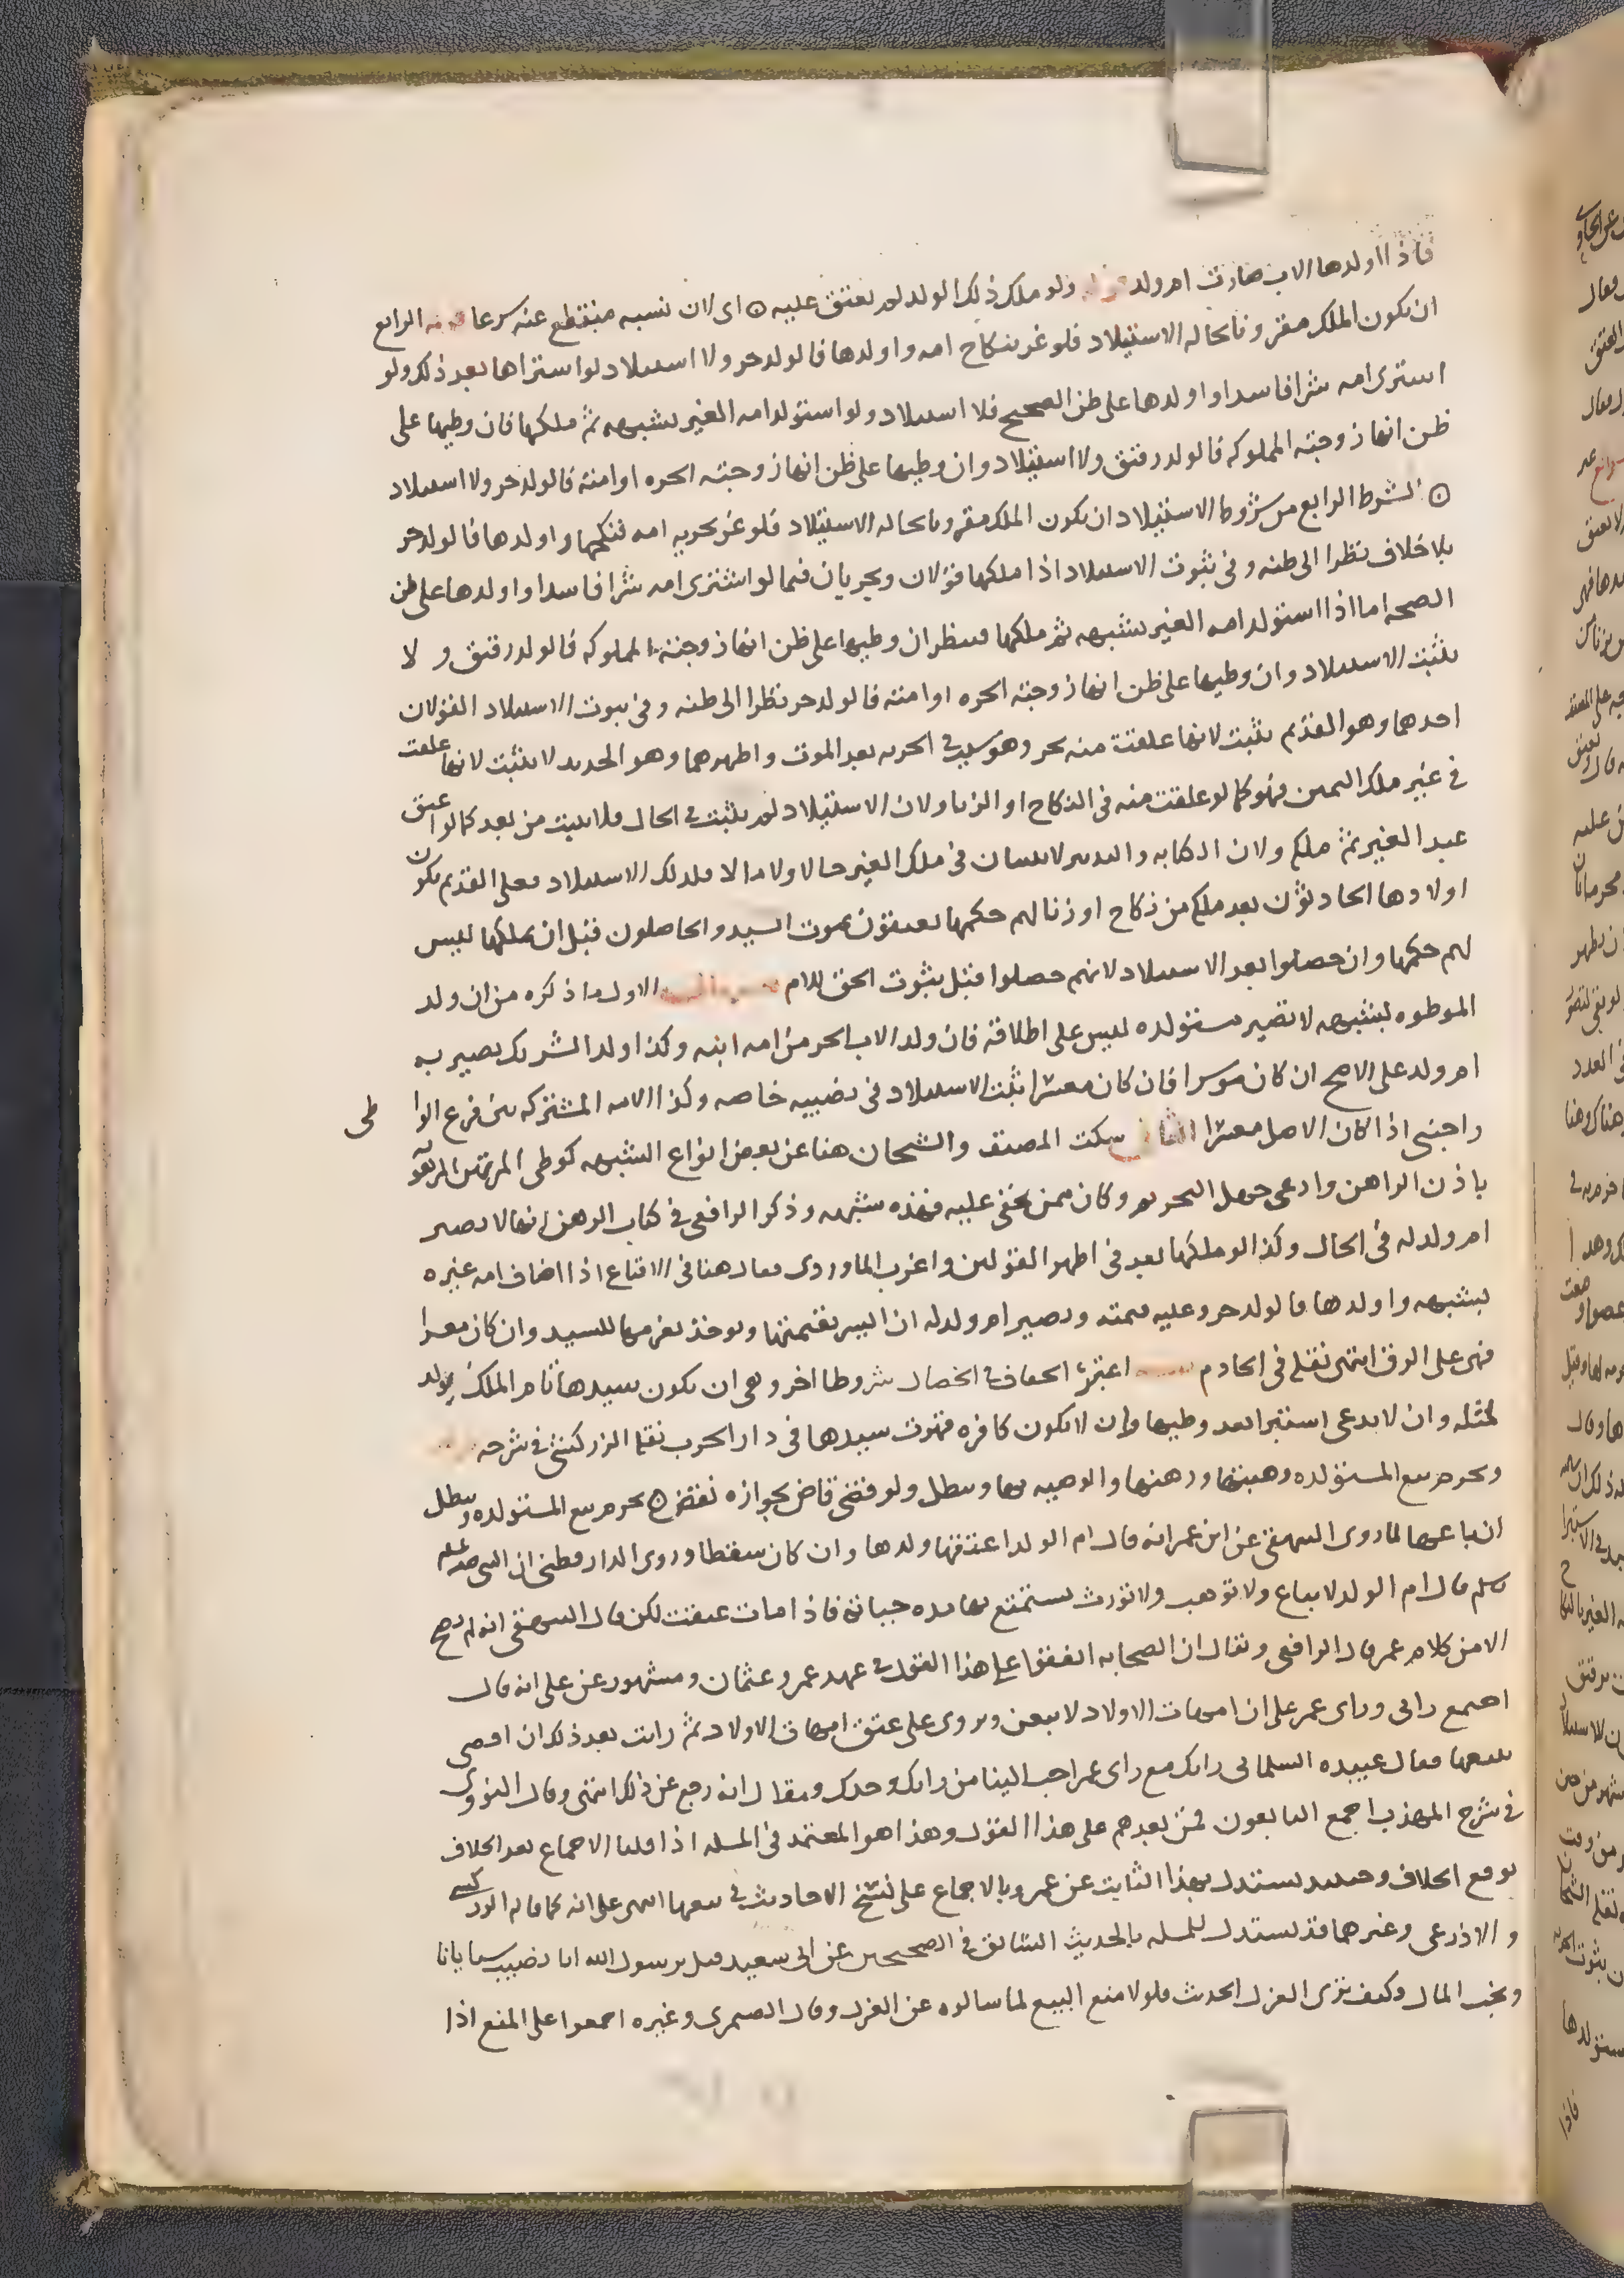 فاذا اولدها الاب صارت ام ولد ولو ملك ذلك الولد لم يعتق عليه ۞ اى لان نسبه منقطع عنه شرعا الرابع
ان يكون الملك مقرونا بحاله الاستيلاد فلو غر بنكاح امه واولدها فالولد حر ولا استيلاد لو اشتراها بعد ذلك ولو
اشترى امه شرا فاسدا واولدها على ظن الصحيح فلا استيلاد ولو استولد امه الغير بشبهه ثم ملكها فان وطيها على
ظن انها زوجته المملوكه فالولد رقيق ولا استيلاد وان وطيها على ظن انها زوجته الحره او امته فالولد حر ولا استيلاد
۞ الشرط الرابع من شروط الاستيلاد ان يكون الملك مقرونا بحاله الاستيلاد فلو غر بحريه امه فنكحها واولدها فالولد حر
بلا خلاف نظرا الى ظنه وفى ثبوت الاستيلاد اذا ملكها قولان ويجريان فيما لو اشترى امه شرا فاسدا واولدها على ظن
الصحه اما اذا استولد امه الغير بشبهه ثم ملكها فينظر ان وطيها على ظن انها زوجته المملوكه فالولد رقيق و لا
يثبت الاستيلاد وان وطيها على ظن انها زوجته الحره او امته فالولد حر نظرا الى ظنه وفى ثبوت الاستيلاد القولان
احدهما وهو القديم يثبت لانها علقت منه بحر وهو سبب فى الحريه بعد الموت واظهرهما وهو الجديد لا يثبت لانها علقت
فى غير ملك اليمين فهو كما لو علقت منه فى النكاح او الزنا ولان الاستيلاد لم يثبت فى الحال فلا يثبت من بعد كما لو اعتق
عبد الغير ثم ملكه ولان الكتابه والتدبير لا يثبتان فى ملك الغير حالا ولا مالا فكذلك الاستيلاد فعلى القديم يكون
اولادها الحادثون بعد ملكه من نكاح او زنا لهم حكمها يعتقون بموت السيد والحاصلون قبل ان يملكها ليس
لهم حكمها وان حصلوا بعد الاستيلاد لانهم حصلوا قبل ثبوت الحق للام الاول ما ذكره من ان ولد
الموطوه بشبهه لا تصير مستولده ليس على اطلاقه فان ولد الاب الحر من امه ابنه وكذا ولد الشريك يصير به
ام ولد على الاصح ان كان موسرا فان كان معسرا ثبت الاستيلاد فى نصيبه خاصه وكذا الامه المشتركه بين فرع الواطى
واجنبى اذا كان الاصل معسرا الثانى سكت المصنف والشيخان هنا عن بعض انواع الشبهه كوطى المرتهن المرهونه
باذن الراهن وادعى جهل التحريم وكان ممن يخفى عليه فهذه شبهه وذكر الرافعى فى كتاب الرهن انها لا تصير
ام ولد له فى الحال وكذا لو ملكها بعد فى اظهر القولين واغرب الماوردى فقال هنا فى الاقناع اذا اضاف امه غيره
بشبهه واولدها فالولد حر وعليه قيمته وتصير ام ولد له ان ايسر بقيمتها ويوخذ بغرمها للسيد وان كان معسرا
فهى على الرق انتهى نقله فى الخادم اعتبر الخفاف فى الخصال شروطا اخر وهى ان يكون سيدها تام الملك يولد
لمثله وان لا يدعى استبرا بعد وطيها وان لا يكون كافره فتموت سيدها فى دار الحرب نقله الزركشى فى شرحه
ويحرم بيع المستولده وهبتها ورهنها والوصيه بها ويبطل ولو قضى قاض بجوازه نقض ۞ يحرم بيع المستولده ويبطل
ان باعها لما روى البيهقى عن ابن عمر انه قال ام الولد اعتقها ولدها وان كان سقطا وروى الدارقطنى ان النبى صلى الله عليه
وسلم قال ام الولد لا يباع ولا توهب ولا تورث يستمتع بها مده حياته فاذا مات عتقت لكن قال البيهقى انه لم يصح
الا من كلام عمر قال الرافعى ويقال ان الصحابه اتفقوا على هذا القول فى عهد عمر وعثمان ومشهور عن على انه قال
اجتمع رايى وراى عمر على ان امهات الاولاد لا يبعن ويروى على عتق امهات الاولاد ثم رايت بعد ذلك ان اقضى
ببيعها فقال عبيده السلمانى رايك مع راى عمر احب الينا من رايك وحدك ويقال انه رجع عن ذلك انتهى وقال النووى
فى شرح المهذب اجمع التابعون فمن بعدهم على هذا القول وهذا هو المعتمد فى المسله اذا قلنا الاجماع بعد الخلاف
يرفع الخلاف وحينيذ يستدل بهذا الثابت عن عمر وبالاجماع على نسخ الاحاديث فى بيعها انتهى على انه كما قاله الزركشى
والاذرعى وغيرهما قد يستدل للمسله بالحديث السابق فى الصحيحين عن ابى سعيد قيل يرسول الله انا نصيب سبايانا
ونحب المال وكيف ترى العزل الحديث فلولا منع البيع لما سالوه عن العزل وقال الصيمرى وغيره اجمعوا على المنع اذا